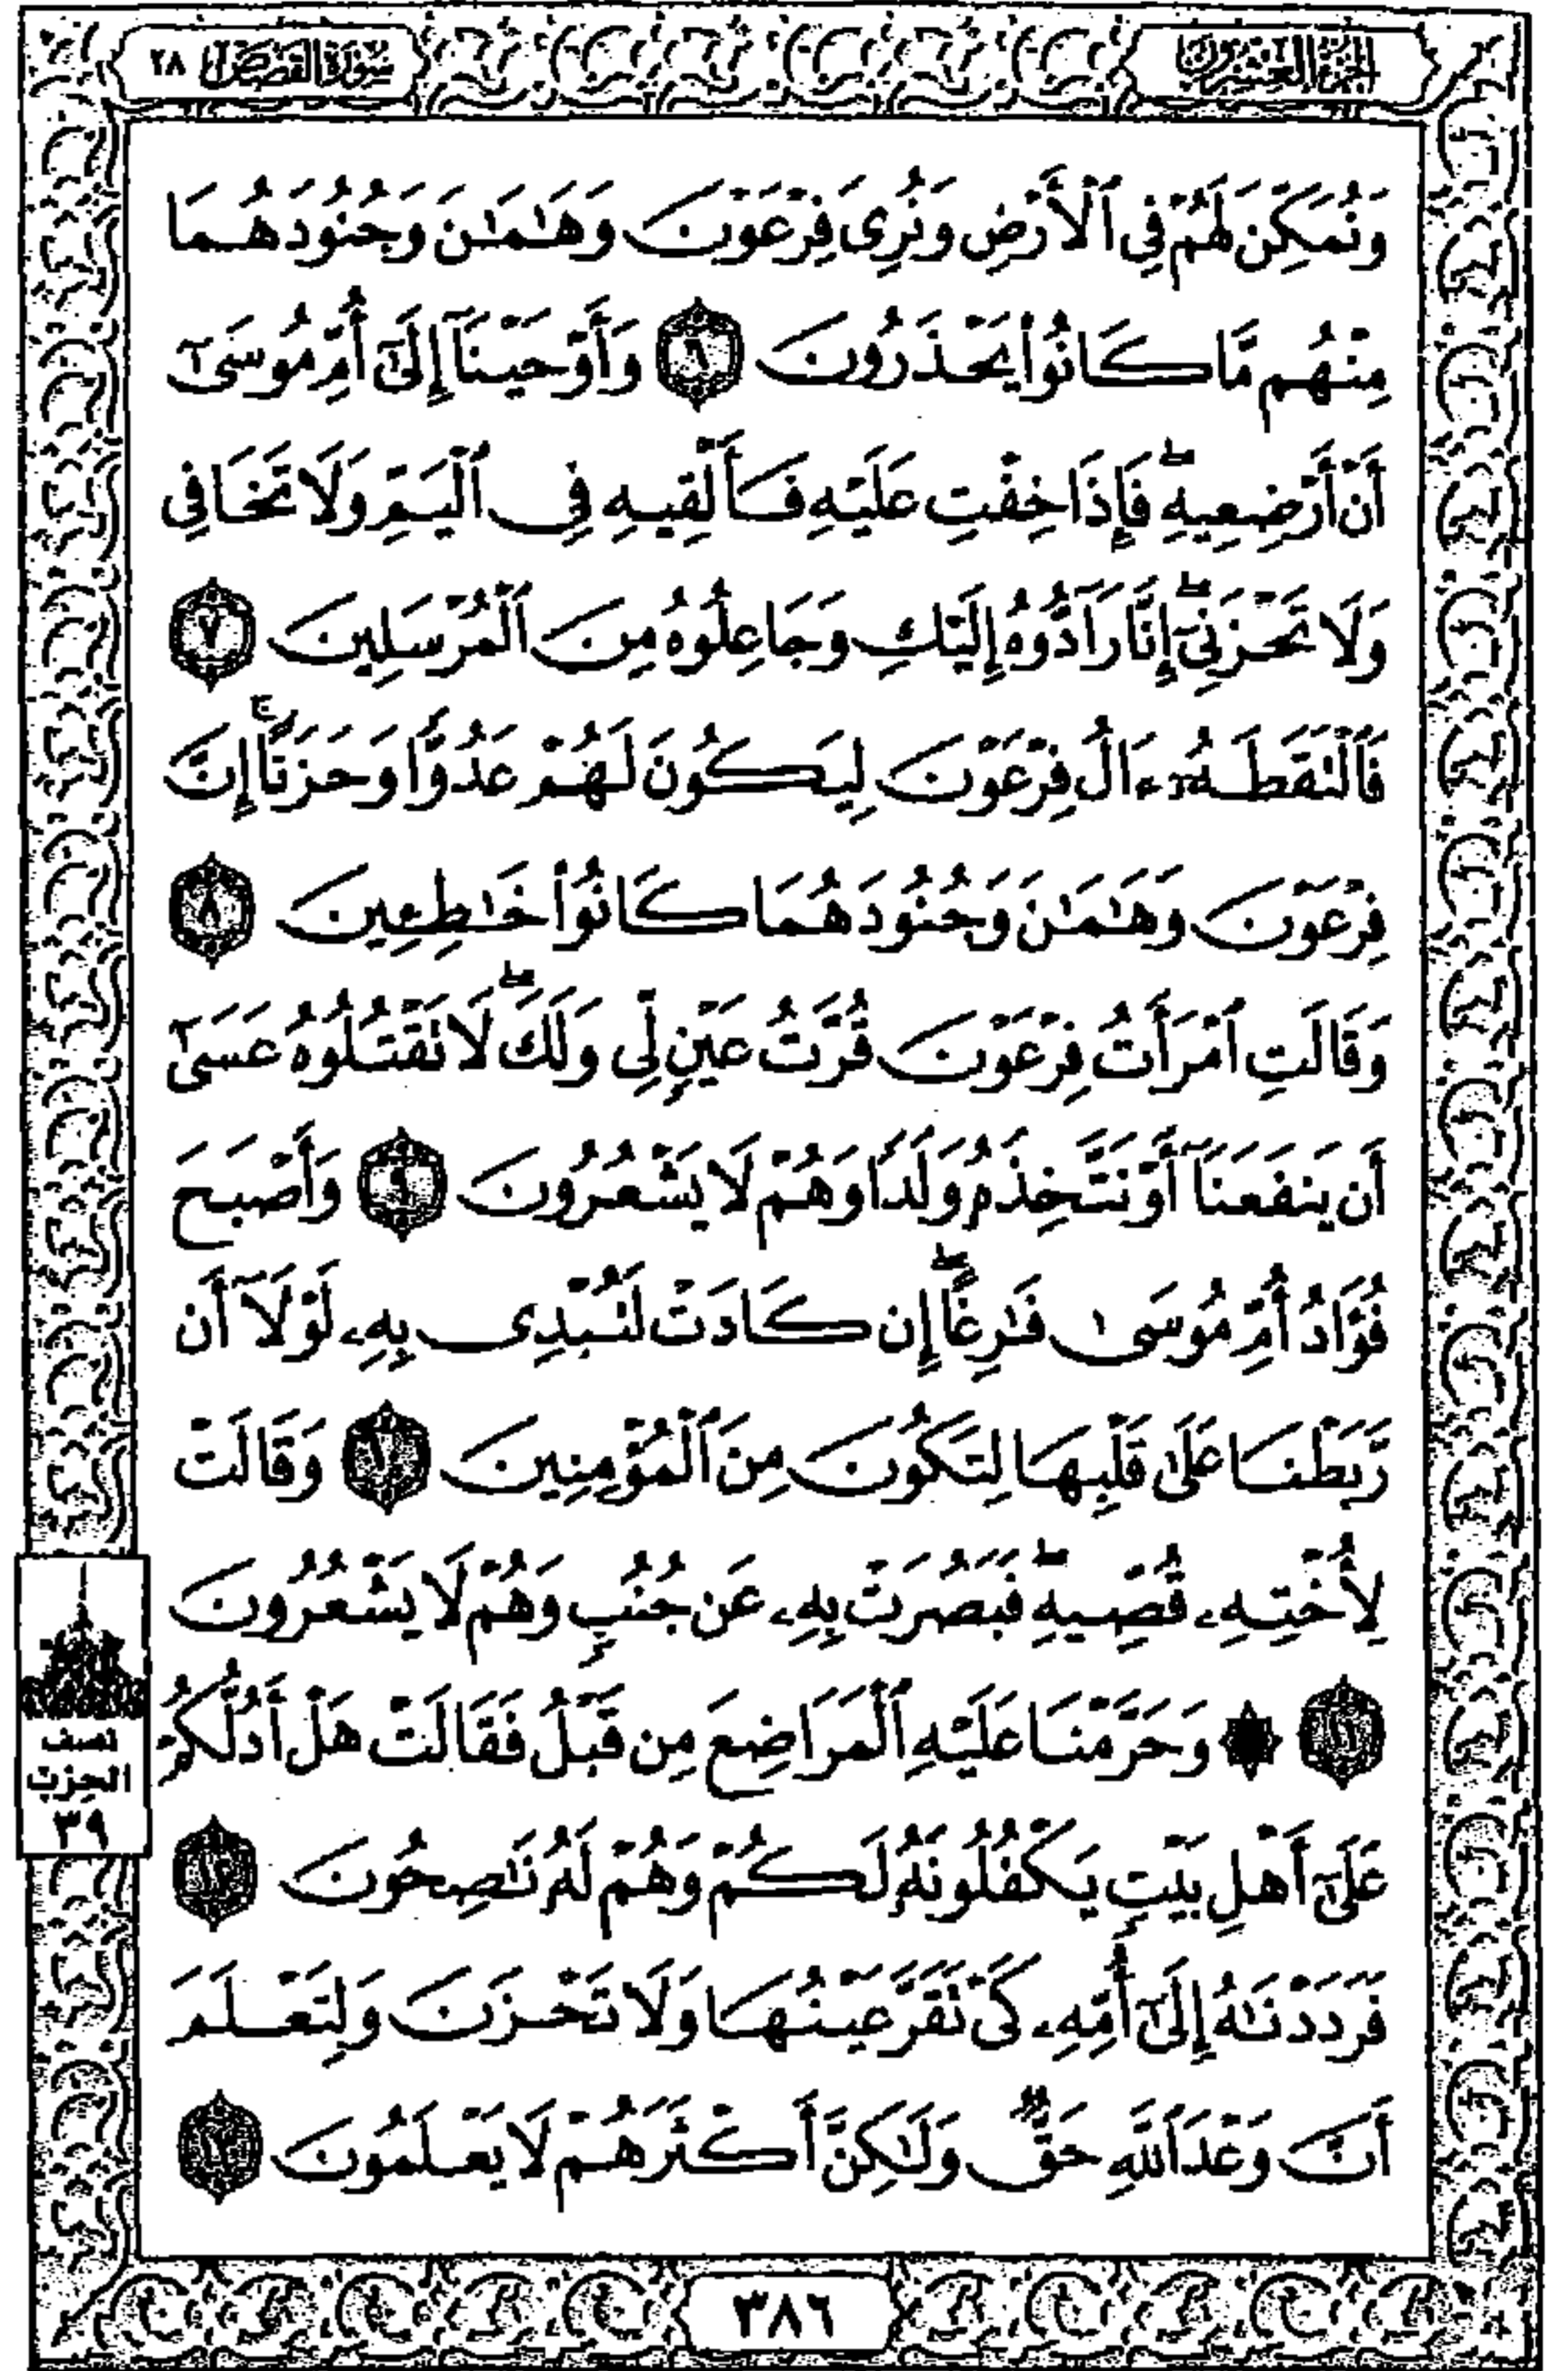 الجزء العشرون
سورة القصص ٢٨
وَنُمَكِّنَ لَهُمْ فِي ٱلْأَرْضِ وَنُرِيَ فِرْعَوْنَ وَهَٰمَٰنَ وَجُنُودَهُمَا
مِنْهُم مَّا كَانُوا۟ يَحْذَرُونَ ٦ وَأَوْحَيْنَآ إِلَىٰٓ أُمِّ مُوسَىٰٓ
أَنْ أَرْضِعِيهِ ۖ فَإِذَا خِفْتِ عَلَيْهِ فَأَلْقِيهِ فِي ٱلْيَمِّ وَلَا تَخَافِي
وَلَا تَحْزَنِيٓ ۖ إِنَّا رَآدُّوهُ إِلَيْكِ وَجَاعِلُوهُ مِنَ ٱلْمُرْسَلِينَ ٧
فَٱلْتَقَطَهُۥٓ ءَالُ فِرْعَوْنَ لِيَكُونَ لَهُمْ عَدُوًّا وَحَزَنًا ۗ إِنَّ
فِرْعَوْنَ وَهَٰمَٰنَ وَجُنُودَهُمَا كَانُوا۟ خَٰطِـِٔينَ ٨
وَقَالَتِ ٱمْرَأَتُ فِرْعَوْنَ قُرَّتُ عَيْنٍ لِّي وَلَكَ ۖ لَا تَقْتُلُوهُ عَسَىٰٓ
أَن يَنفَعَنَآ أَوْ نَتَّخِذَهُۥ وَلَدًا وَهُمْ لَا يَشْعُرُونَ ٩ وَأَصْبَحَ
فُؤَادُ أُمِّ مُوسَىٰ فَٰرِغًا ۖ إِن كَادَتْ لَتُبْدِي بِهِۦ لَوْلَآ أَن
رَّبَطْنَا عَلَىٰ قَلْبِهَا لِتَكُونَ مِنَ ٱلْمُؤْمِنِينَ ١٠ وَقَالَتْ
لِأُخْتِهِۦ قُصِّيهِ ۖ فَبَصُرَتْ بِهِۦ عَن جُنُبٍ وَهُمْ لَا يَشْعُرُونَ
١١ ۞ وَحَرَّمْنَا عَلَيْهِ ٱلْمَرَاضِعَ مِن قَبْلُ فَقَالَتْ هَلْ أَدُلُّكُمْ
عَلَىٰٓ أَهْلِ بَيْتٍ يَكْفُلُونَهُۥ لَكُمْ وَهُمْ لَهُۥ نَٰصِحُونَ ١٢
فَرَدَدْنَٰهُ إِلَىٰٓ أُمِّهِۦ كَيْ تَقَرَّ عَيْنُهَا وَلَا تَحْزَنَ وَلِتَعْلَمَ
أَنَّ وَعْدَ ٱللَّهِ حَقٌّ وَلَٰكِنَّ أَكْثَرَهُمْ لَا يَعْلَمُونَ ١٣
نصف
الحزب
٣٩
٣٨٦